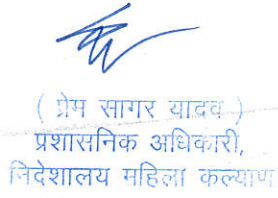 ( प्रेम सागर यादव )
प्रशासनिक अधिकारी,
निदेशालय महिला कल्याण